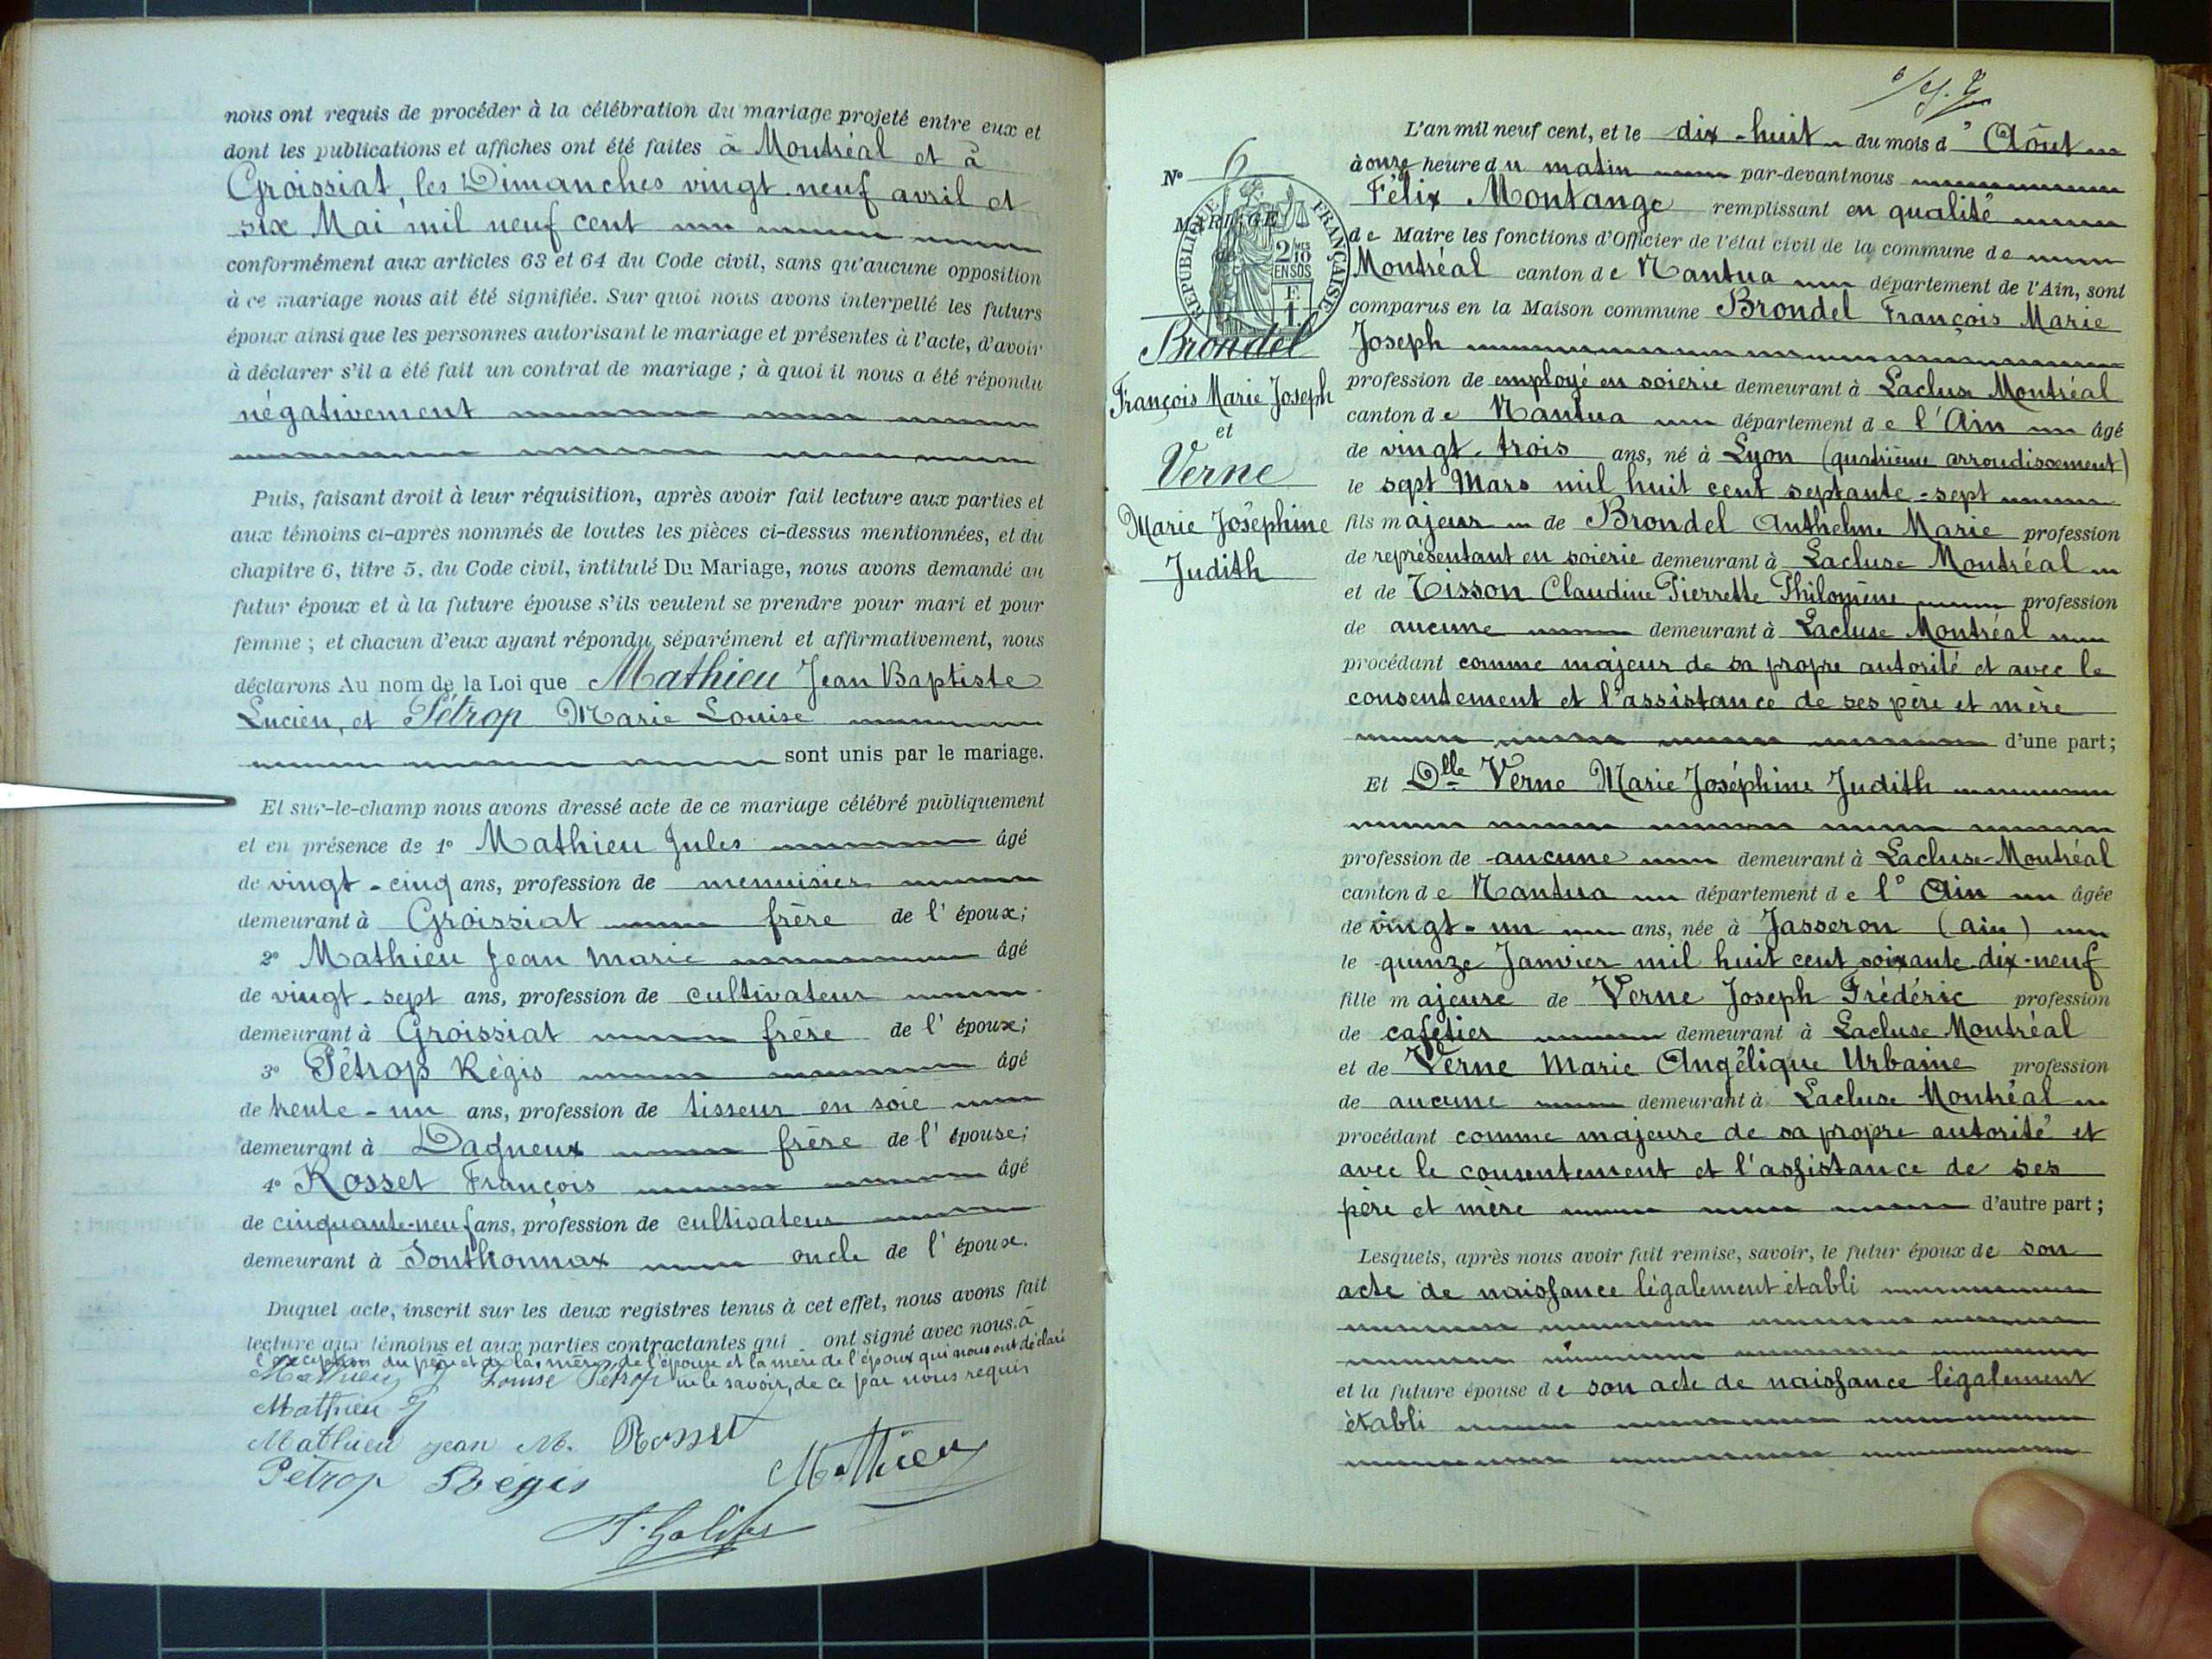 nous ont requis de procéder à la célébration du mariage projeté entre eux et
dont les publications et affiches ont été faites à Montréal et à
Groissiat, les Dimanches vingt-neuf avril et
six Mai mil neuf cent
conformément aux articles 63 et 64 du Code civil, sans qu'aucune opposition
à ce mariage nous ait été signifiée. Sur quoi nous avons interpellé les futurs
époux ainsi que les personnes autorisant le mariage et présentes à l'acte, d'avoir
à déclarer s'il a été fait un contrat de mariage ; à quoi il nous a été répondu
négativement
Puis, faisant droit à leur réquisition, après avoir fait lecture aux parties et
aux témoins ci-après nommés de toutes les pièces ci-dessus mentionnées, et du
chapitre 6, titre 5, du Code civil, intitulé Du Mariage, nous avons demandé au
futur époux et à la future épouse s'ils veulent se prendre pour mari et pour
femme ; et chacun d'eux ayant répondu séparément et affirmativement, nous
déclarons Au nom de la Loi que Mathieu Jean Baptiste
Lucien, et Pétrop Marie Louise
sont unis par le mariage.
Et sur-le-champ nous avons dressé acte de ce mariage célébré publiquement
et en présence de 1° Mathieu Jules âgé
de vingt-cinq ans, profession de menuisier
demeurant à Groissiat frère de l'époux;
2° Mathieu Jean Marie âgé
de vingt-sept ans, profession de cultivateur
demeurant à Groissiat frère de l'époux;
3° Pétrop Régis âgé
de trente-un ans, profession de tisseur en soie
demeurant à Dagneux frère de l'épouse;
4° Rosset François âgé
de cinquante-neuf ans, profession de cultivateur
demeurant à Sonthonnax oncle de l'épouse.
Duquel acte, inscrit sur les deux registres tenus à cet effet, nous avons fait
lecture aux témoins et aux parties contractantes qui ont signé avec nous. à
l'exception du père et de la mère de l'épouse et la mère de l'époux qui nous ont déclaré
Mathieu J Louise Pétrop ne le savoir, de ce par nous requis
Mathieu J
Mathieu Jean M. Rosset
Pétrop Régis Mathieu
N° 6
MARIAGE
RÉPUBLIQUE FRANÇAISE
2/10 EN SUS
Brondel
François Marie Joseph
et
Verne
Marie Joséphine
Judith
L'an mil neuf cent, et le dix-huit du mois d'Août
à onze heure du matin par-devant nous
Félix Montange remplissant en qualité
de Maire les fonctions d'Officier de l'état civil de la commune de
Montréal canton de Nantua département de l'Ain, sont
comparus en la Maison commune Brondel François Marie
Joseph
profession de employé en soierie demeurant à Lacluse Montréal
canton de Nantua département de l'Ain âgé
de vingt-trois ans, né à Lyon (quatrième arrondissement)
le sept Mars mil huit cent septante-sept
fils majeur de Brondel Anthelme Marie profession
de représentant en soierie demeurant à Lacluse Montréal
et de Tisson Claudine Pierrette Philomène profession
de aucune demeurant à Lacluse Montréal
procédant comme majeur de sa propre autorité et avec le
consentement et l'assistance de ses père et mère
d'une part;
Et Dlle Verne Marie Joséphine Judith
profession de aucune demeurant à Lacluse-Montréal
canton de Nantua département de l'Ain âgée
de vingt-un ans, née à Jasseron (Ain)
le quinze Janvier mil huit cent soixante-dix-neuf
fille majeure de Verne Joseph Frédéric profession
de cafetier demeurant à Lacluse Montréal
et de Verne Marie Angélique Urbaine profession
de aucune demeurant à Lacluse Montréal
procédant comme majeure de sa propre autorité et
avec le consentement et l'assistance de ses
père et mère d'autre part;
Lesquels, après nous avoir fait remise, savoir, le futur époux de son
acte de naissance légalement établi
et la future épouse de son acte de naissance légalement
établi